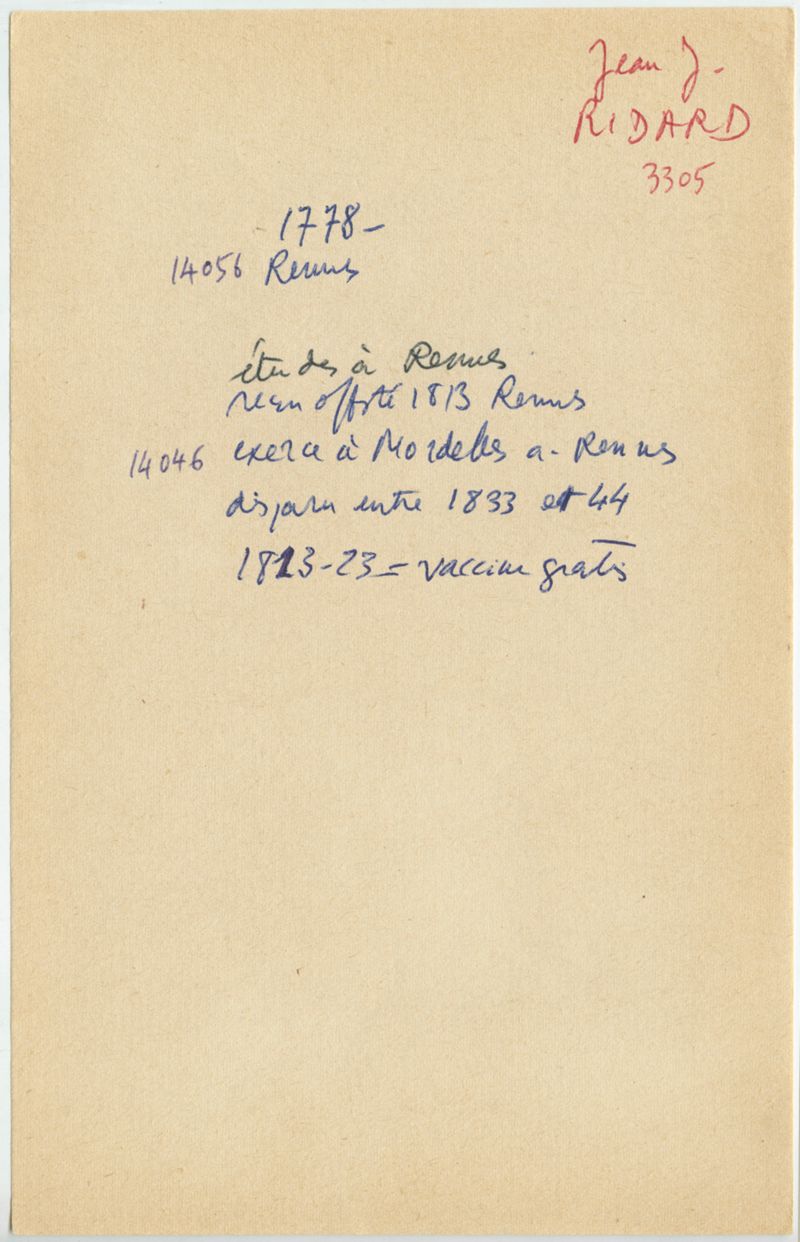 Jean J.
RIDARD
3305
1778-
14056 Rennes
études à Rennes
reçu off 1813 Rennes
14046 exerce à Mordelles a. Rennes
disparu entre 1833 et 44
1813-23 = vaccine gratis